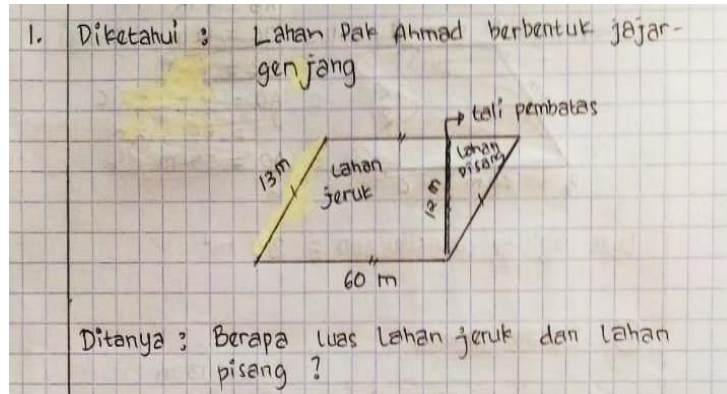 1. Diketahui : Lahan Pak Ahmad berbentuk jajar-
genjang
tali pembatas
13 m
Lahan
jeruk
12 m
Lahan
pisang
60 m
Ditanya : Berapa luas lahan jeruk dan lahan
pisang ?